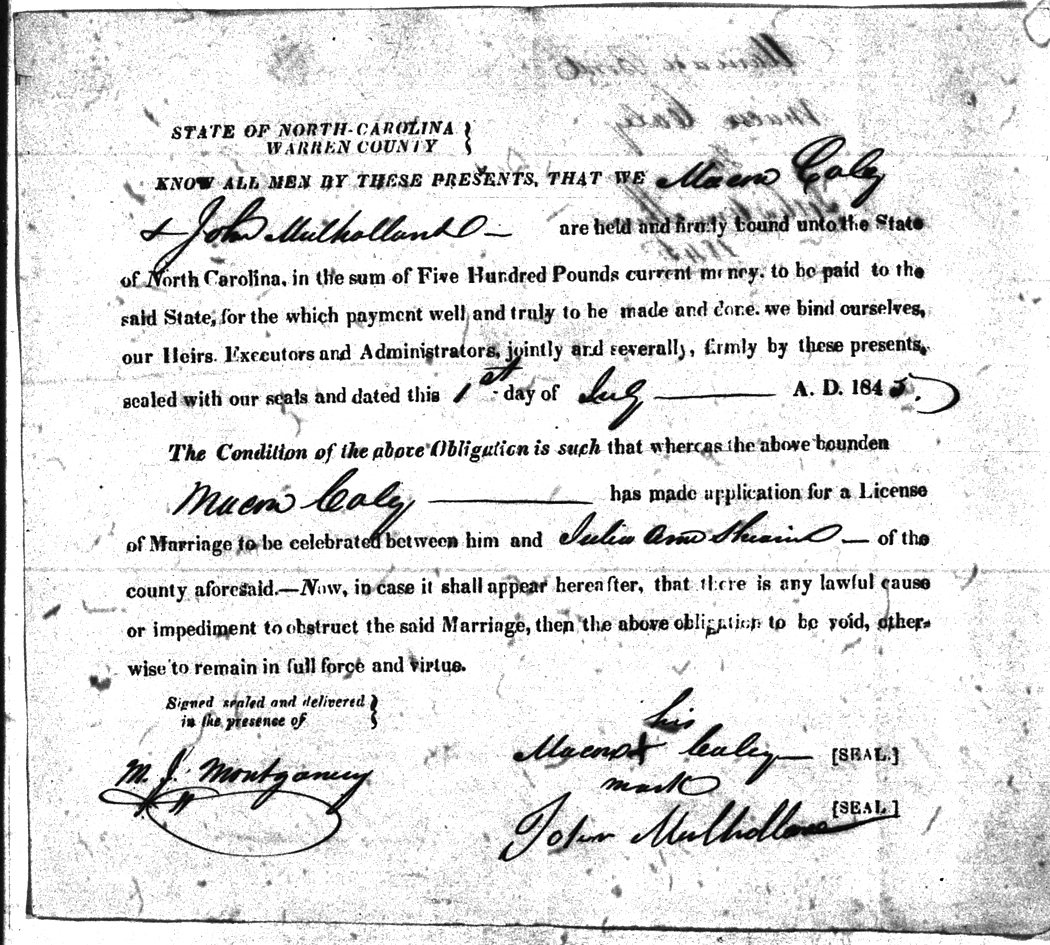 STATE OF NORTH-CAROLINA }
WARREN COUNTY }
KNOW ALL MEN BY THESE PRESENTS, THAT WE Macon Caley
& John Mulholland — are held and firmly bound unto the State
of North Carolina, in the sum of Five Hundred Pounds current money, to be paid to the
said State, for the which payment well and truly to be made and done. we bind ourselves,
our Heirs. Executors and Administrators, jointly and severally, firmly by these presents,
sealed with our seals and dated this 1st day of July — A. D. 1845.
The Condition of the above Obligation is such that whereas the above bounden
Macon Caley — has made application for a License
of Marriage to be celebrated between him and Julia Ann — of the
county aforesaid.—Now, in case it shall appear hereafter, that there is any lawful cause
or impediment to obstruct the said Marriage, then the above obligation to be void, other-
wise to remain in full force and virtue.
Signed sealed and delivered }
in the presence of }
his
Macon X Caley — [SEAL.]
mark
M. J. Montgomery
John Mulholland [SEAL.]